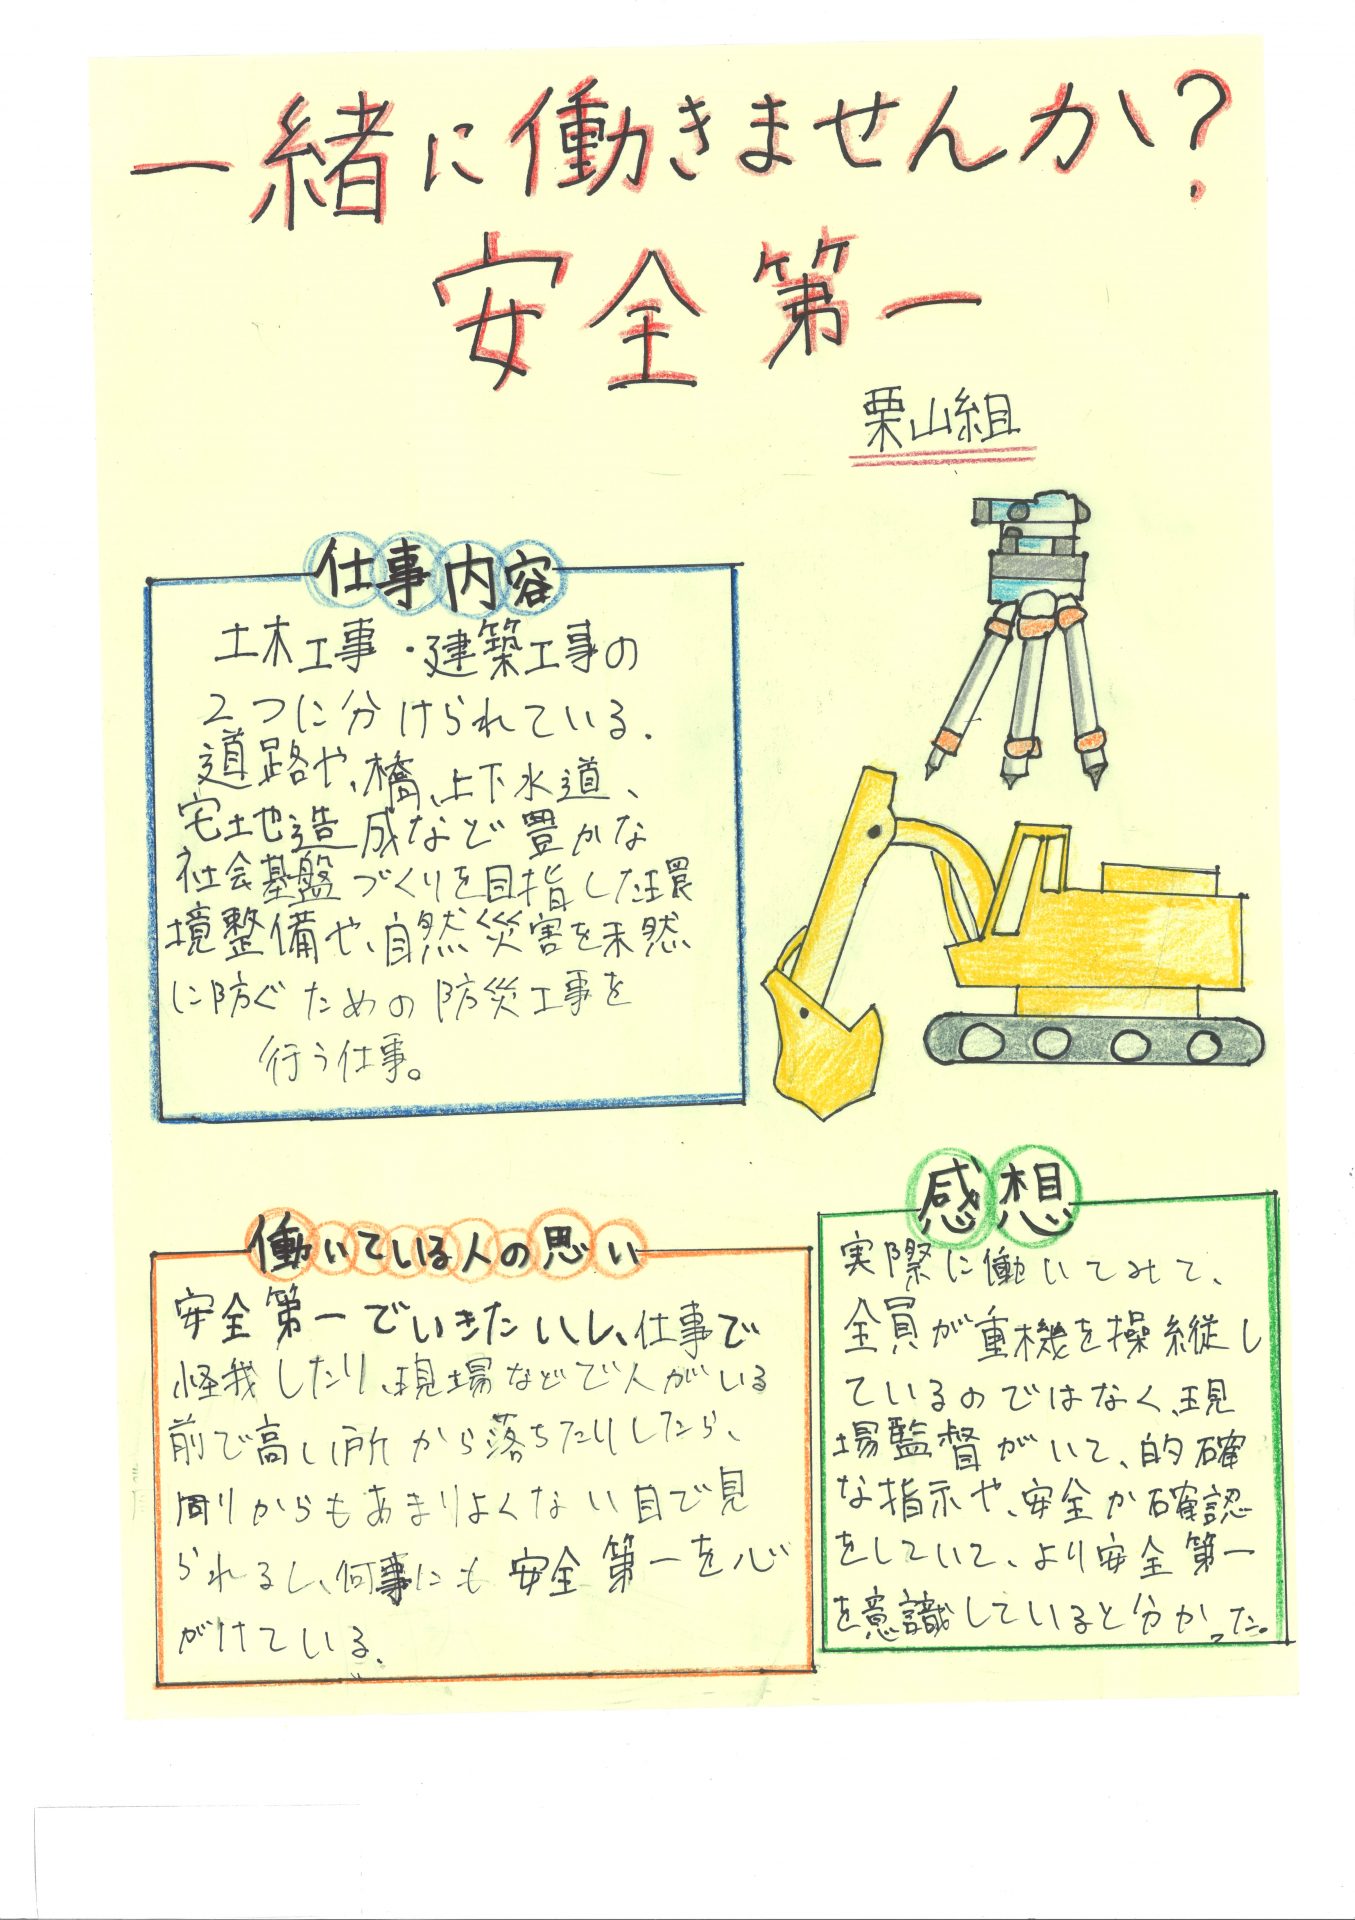 一緒に働きませんか?
安全第一
栗山組
仕事内容
土木工事・建築工事の
2つに分けられている.
道路や、橋、上下水道、
宅地造成など豊かな
社会基盤づくりを目指した環
境整備や、自然災害を未然
に防ぐための防災工事を
行う仕事。
働いている人の思い
安全第一でいきたいし、仕事で
怪我したり、現場などで人がいる
前で高い所から落ちたりしたら、
周りからもあまりよくない目で見
られるし、何事にも安全第一を心
がけている.
感想
実際に働いてみて、
全員が重機を操縦し
ているのではなく、現
場監督がいて、的確
な指示や、安全か確認
をしていて、より安全第一
を意識していると分かった。